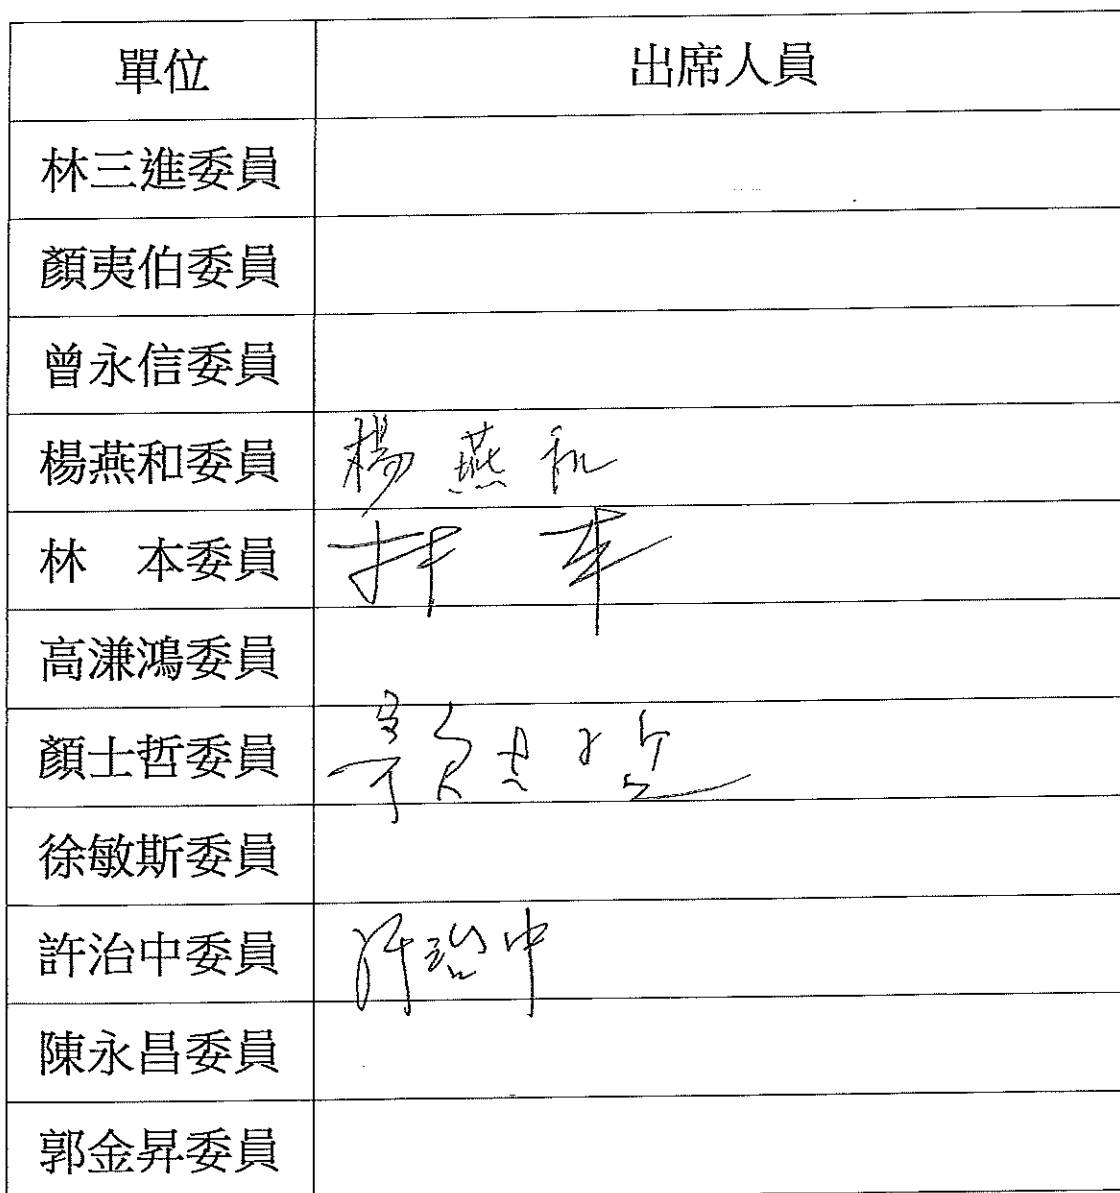 單位 出席人員
林三進委員
顏夷伯委員
曾永信委員
楊燕和委員 楊燕和
林 本委員 林 本
高溓鴻委員
顏士哲委員 顏士哲
徐敏斯委員
許治中委員 許治中
陳永昌委員
郭金昇委員